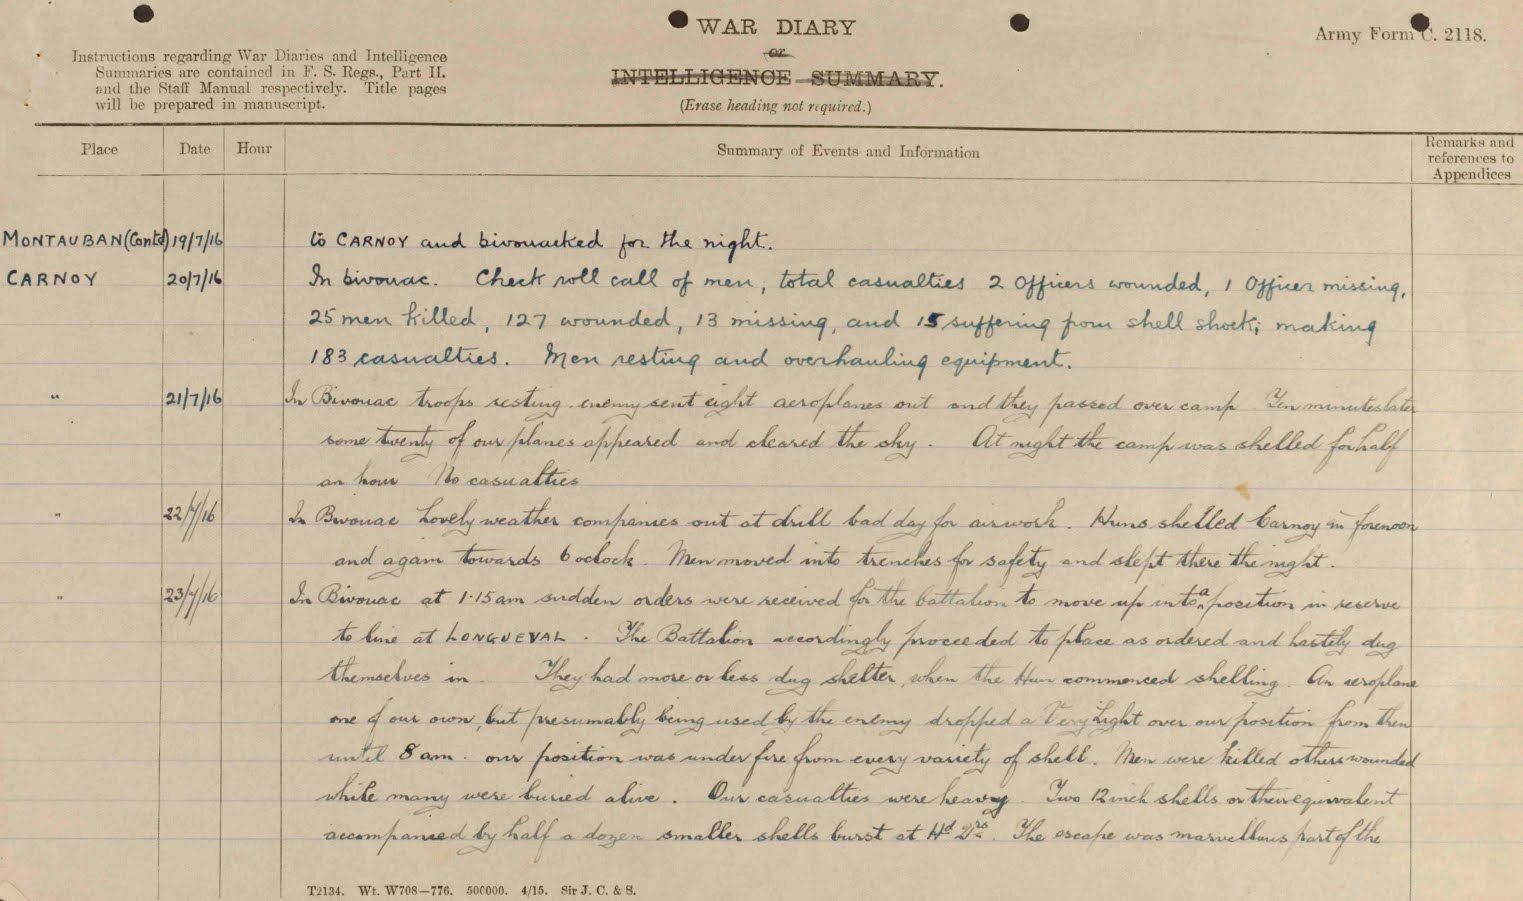 WAR DIARY
or
INTELLIGENCE SUMMARY.
(Erase heading not required.)
Army Form C. 2118.
Instructions regarding War Diaries and Intelligence
Summaries are contained in F. S. Regs., Part II.
and the Staff Manual respectively. Title pages
will be prepared in manuscript.
Place Date Hour Summary of Events and Information Remarks and
references to
Appendices
MONTAUBAN (Contd) 19/7/16 to CARNOY and bivouacked for the night.
CARNOY 20/7/16 In bivouac. Check roll call of men, total casualties 2 Officers wounded, 1 Officer missing,
25 men killed, 127 wounded, 13 missing, and 15 suffering from shell shock; making
183 casualties. Men resting and overhauling equipment.
" 21/7/16 In Bivouac troops resting. enemy sent eight aeroplanes out and they passed over camp Ten minutes later
some twenty of our planes appeared and cleared the sky. At night the camp was shelled for half
an hour No casualties
" 22/7/16 In Bivouac Lovely weather companies out at drill bad day for airwork. Huns shelled Carnoy in forenoon
and again towards 6 oclock. Men moved into trenches for safety and slept there the night.
" 23/7/16 In Bivouac at 1.15 am sudden orders were received for the battalion to move up into a position in reserve
to line at LONGUEVAL. The Battalion accordingly proceeded to place as ordered and hastely dug
themselves in. They had more or less dug shelter, when the Hun commenced shelling. An aeroplane
one of our own, but presumably being used by the enemy dropped a Very Light over our position from then
until 8 am. our position was under fire from every variety of shell. Men were killed others wounded
while many were buried alive. Our casualties were heavy. Two 12 inch shells or their equivalent
accompanied by half a dozen smaller shells burst at Hd Qrs. The escape was marvellous part of the
T2134. Wt. W708—776. 500000. 4/15. Sir J. C. & S.